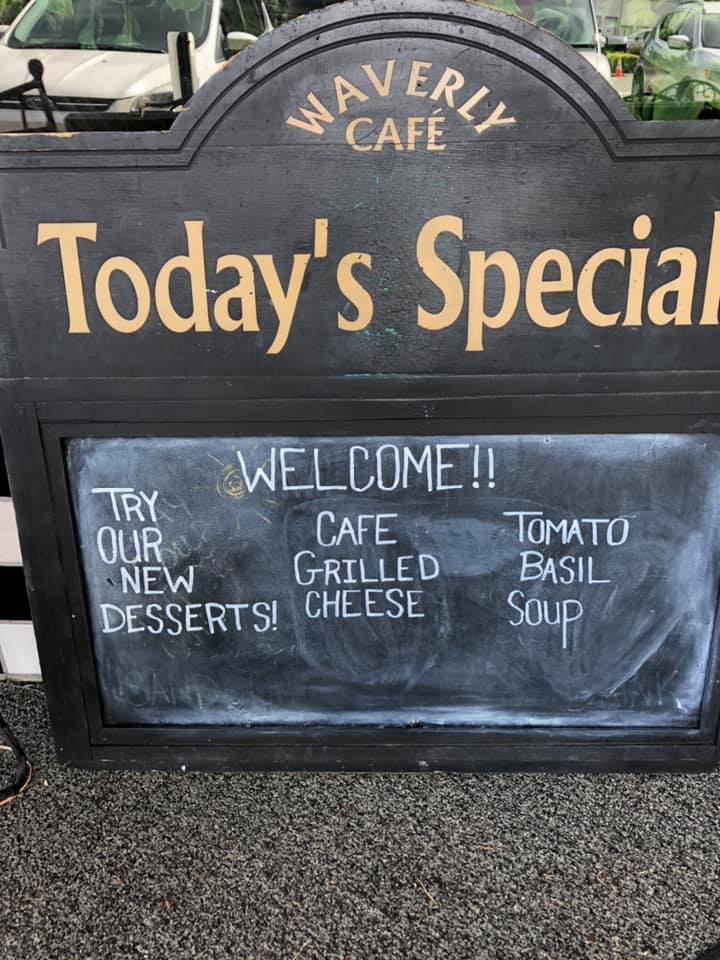 WAVERLY
CAFÉ
Today's Special
WELCOME!!
TRY
OUR
NEW
DESSERTS!
CAFE
GRILLED
CHEESE
TOMATO
BASIL
SOUP